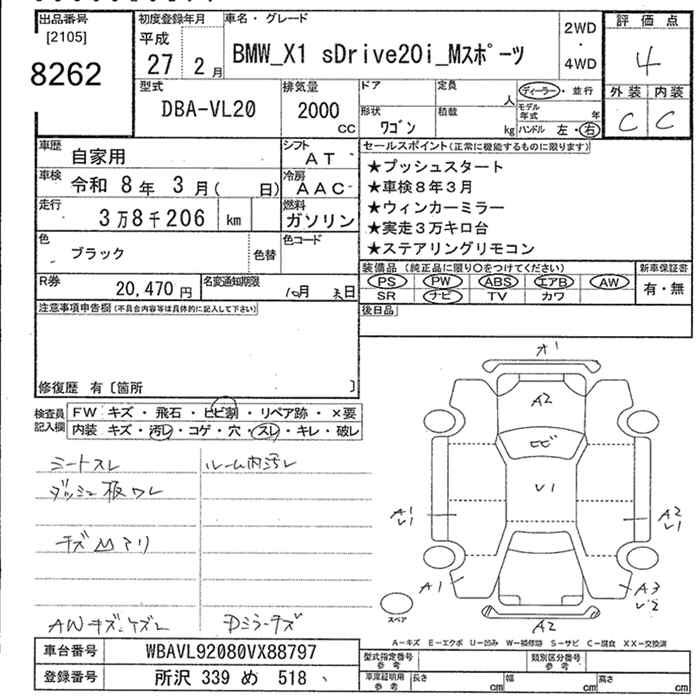 出品番号 初度登録年月 車名・グレード 2WD・4WD 評価点
[2105] 平成
8262 27年 2月 BMW_X1 sDrive20i_Mスポーツ 4
型式 排気量 ドア 定員 人 ディーラー・並行 外装 内装
DBA-VL20 2000 CC 形状 ワゴン 積載 kg モデル年式 年 C C
ハンドル 左・右
車歴 自家用 シフト AT セールスポイント(正常に機能するものに限ります)
車検 令和 8年 3月( 日) 冷房 AAC ★プッシュスタート
★車検8年3月
走行 3万8千206 km 燃料 ガソリン ★ウィンカーミラー
★実走3万キロ台
色 ブラック 色替 色コード ★ステアリングリモコン
装備品(純正品に限り○をつけてください) 新車保証書
R券 20,470円 名変通知期限 10月 末日 PS PW ABS エアB AW 有・無
SR ナビ TV カワ
注意事項申告欄(不具合内容等は具体的に記入して下さい) 後日品
修復歴 有〔箇所 〕
検査員記入欄 FW キズ・飛石・ヒビ割・リペア跡・×要
内装 キズ・汚レ・コゲ・穴・スレ・キレ・破レ
シートスレ ルーム内汚レ
ダッシュ板ワレ
キズ凹アリ
AWキズ、ケズレ Dミラーキズ
オ1
A2
ヒビ
V1
A1 V1
A2 V1
A1
A3 V2
A2
スペア
A-キズ E-エクボ U-凹み W-補修跡 S-サビ C-腐食 XX-交換済
車台番号 WBAVL92080VX88797 型式指定番号 参考 類別区分番号 参考
登録番号 所沢 339 め 518 車庫証明用 参考 長さ cm 幅 cm 高さ cm